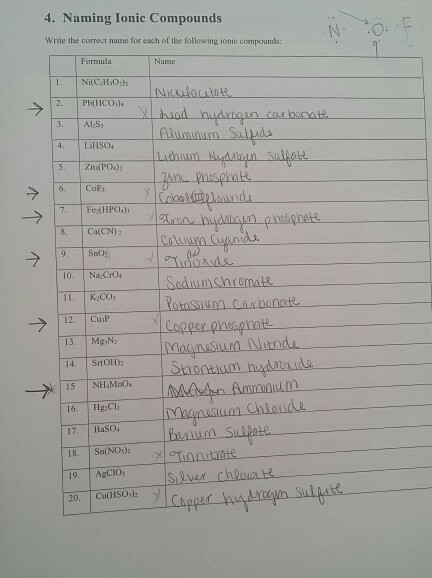 4. Naming Ionic Compounds
·N· ·O· F
Write the correct name for each of the following ionic compounds:
Formula Name
1. Ni(C₂H₃O₂)₂ Nickel acetate
2. Pb(HCO₃)₄ x lead hydrogen carbonate
3. Al₂S₃ Aluminum Sulfide
4. LiHSO₄ Lithium Hydrogen sulfate
5. Zn₃(PO₄)₂ Zinc Phosphate
6. CoF₃ Cobalt III flouride
7. Fe₂(HPO₄)₃ Iron hydrogen phosphate
8. Ca(CN)₂ Calcium Cyanide
9. SnO₂ Tin oxide
10. Na₂CrO₄ Sodium chromate
11. K₂CO₃ Potassium Carbonate
12. Cu₃P x Copper phosphate
13. Mg₃N₂ Magnesium Nitride
14. Sr(OH)₂ Strontium hydroxide
15 NH₄MnO₄ Ammonium
16. Hg₂Cl₂ Magnesium Chloride
17. BaSO₄ Barium Sulfate
18. Sn(NO₃)₂ x Tin nitrate
19. AgClO₃ Silver chlorate
20. Cu(HSO₃)₂ Copper hydrogen sulfite